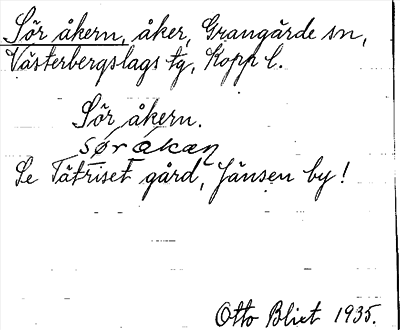 Sör åkern, åker, Grangärde sn,
Västerbergslags tg, Kopp l.
Sör åkern.
Se gård, Jänsen by!
Otto Blixt 1935.